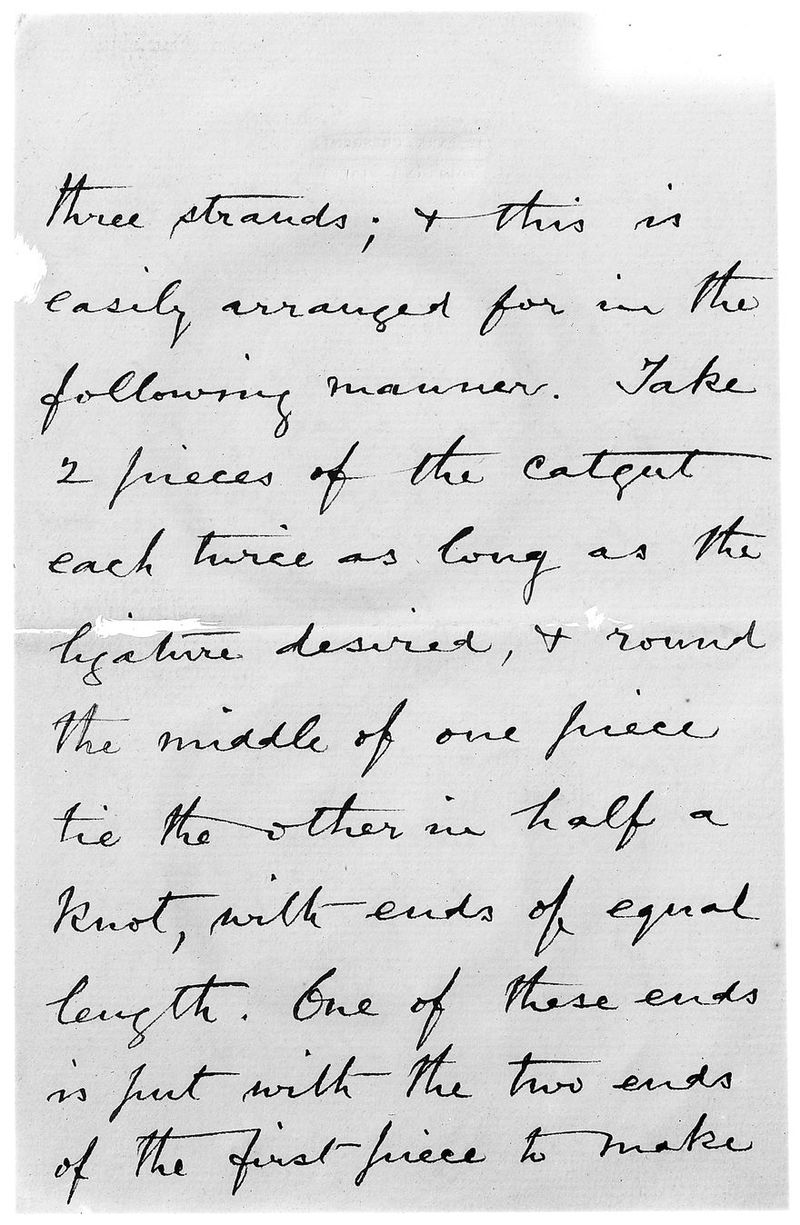 three strands; & this is
easily arranged for in the
following manner. Take
2 pieces of the catgut
each twice as long as the
ligature desired, & round
the middle of one piece
tie the other in half a
knot, with ends of equal
length. One of these ends
is put with the two ends
of the first piece to make